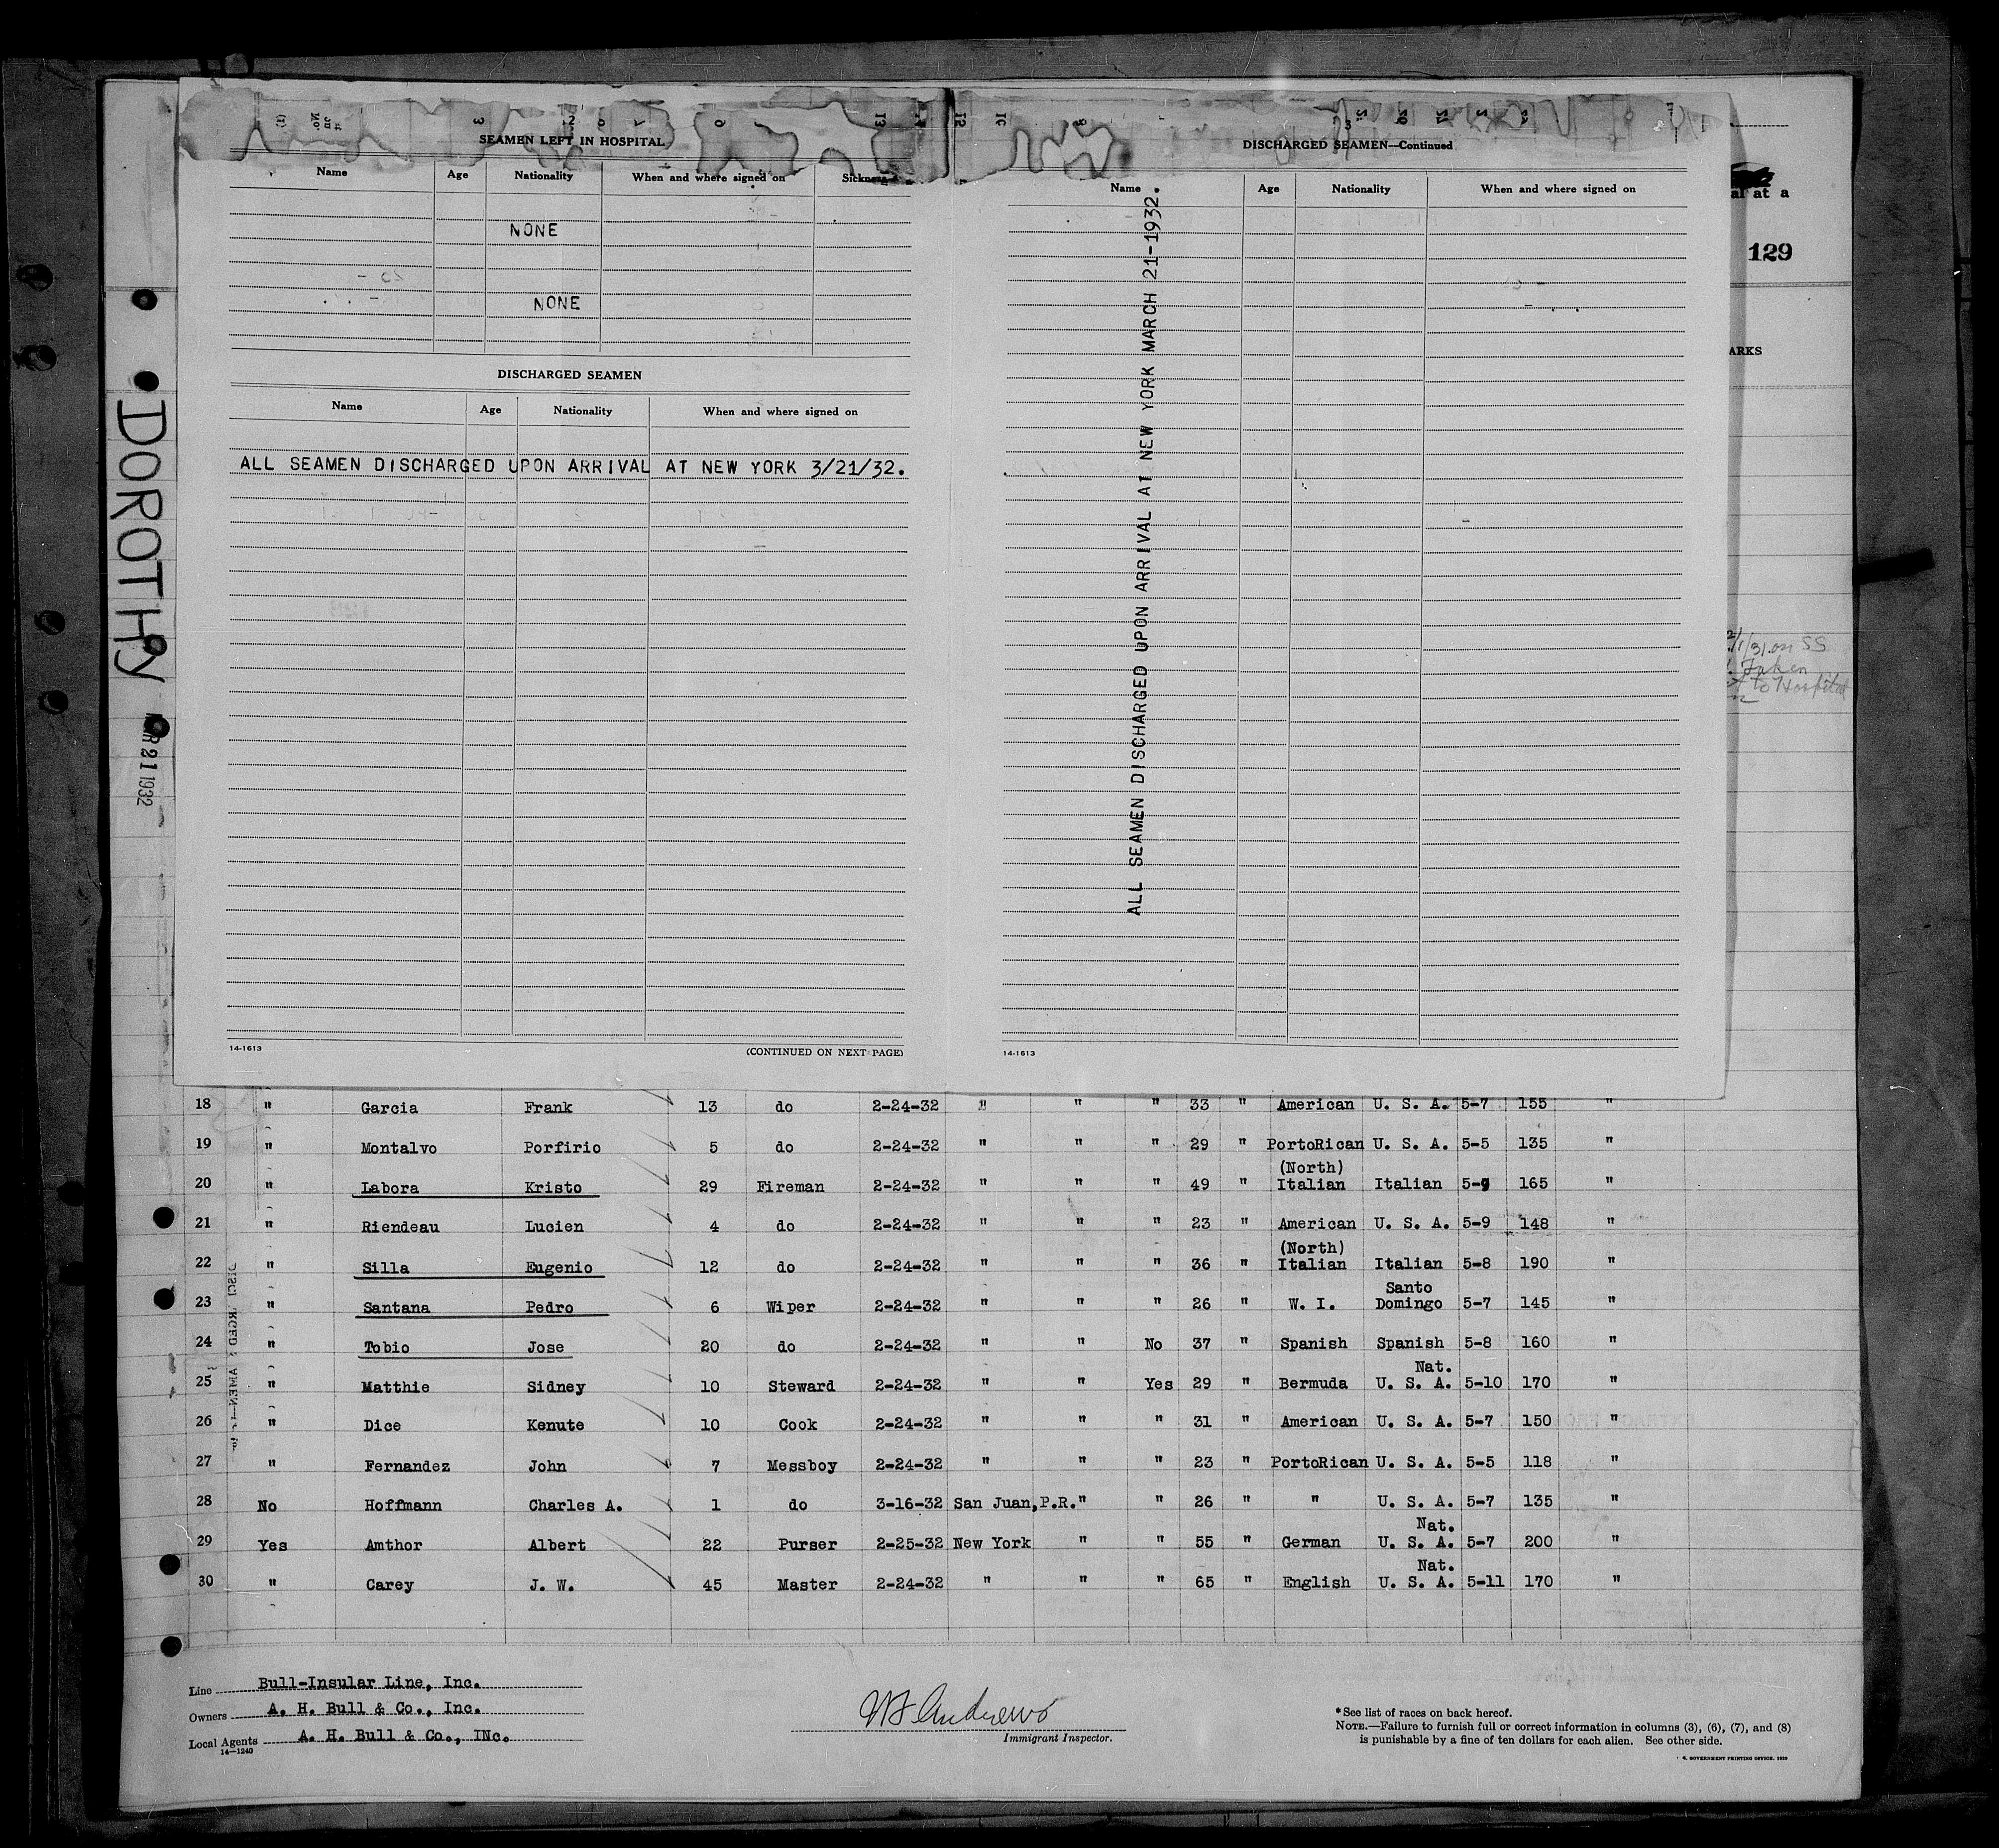 SEAMEN LEFT IN HOSPITAL
Name Age Nationality When and where signed on Sickness
NONE
NONE
DISCHARGED SEAMEN
Name Age Nationality When and where signed on
ALL SEAMEN DISCHARGED UPON ARRIVAL AT NEW YORK 3/21/32.
14-1613 (CONTINUED ON NEXT PAGE)
DISCHARGED SEAMEN—Continued
Name Age Nationality When and where signed on
ALL SEAMEN DISCHARGED UPON ARRIVAL AT NEW YORK MARCH 21-1932.
14-1613
al at a
129
ARKS
/31 on SS
Taken
to Hospital
DOROTHY
MR 21 1932
18 " Garcia Frank 13 do 2-24-32 " " " 33 " American U. S. A. 5-7 155 "
19 " Montalvo Porfirio 5 do 2-24-32 " " " 29 " PortoRican U. S. A. 5-5 135 "
(North)
20 " Labora Kristo 29 Fireman 2-24-32 " " " 49 " Italian Italian 5-9 165 "
21 " Riendeau Lucien 4 do 2-24-32 " " " 23 " American U. S. A. 5-9 148 "
(North)
22 " Silla Eugenio 12 do 2-24-32 " " " 36 " Italian Italian 5-8 190 "
Santo
23 " Santana Pedro 6 Wiper 2-24-32 " " " 26 " W. I. Domingo 5-7 145 "
24 " Tobio Jose 20 do 2-24-32 " " No 37 " Spanish Spanish 5-8 160 "
Nat.
25 " Matthie Sidney 10 Steward 2-24-32 " " Yes 29 " Bermuda U. S. A. 5-10 170 "
26 " Dice Kenute 10 Cook 2-24-32 " " " 31 " American U. S. A. 5-7 150 "
27 " Fernandez John 7 Messboy 2-24-32 " " " 23 " PortoRican U. S. A. 5-5 118 "
28 No Hoffmann Charles A. 1 do 3-16-32 San Juan,P.R. " " 26 " " U. S. A. 5-7 135 "
Nat.
29 Yes Amthor Albert 22 Purser 2-25-32 New York " " 55 " German U. S. A. 5-7 200 "
Nat.
30 " Carey J. W. 45 Master 2-24-32 " " " 65 " English U. S. A. 5-11 170 "
Line Bull-Insular Line, Inc.
Owners A. H. Bull & Co., Inc.
Local Agents A. H. Bull & Co., INc.
14-1240
Andrews
Immigrant Inspector.
*See list of races on back hereof.
NOTE.—Failure to furnish full or correct information in columns (3), (6), (7), and (8)
is punishable by a fine of ten dollars for each alien. See other side.
GOVERNMENT PRINTING OFFICE